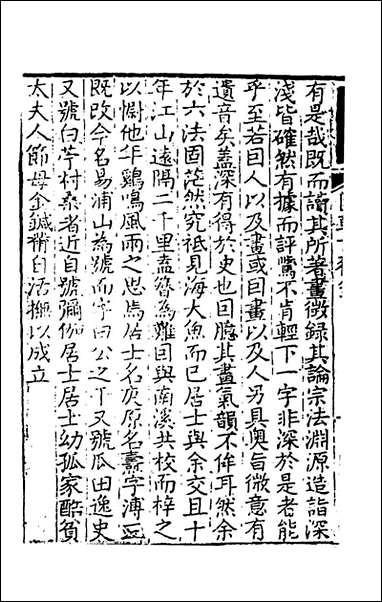 有是哉既而讀其所著畫徵録其論宗法淵源造詣深
淺皆確然有據而評騭不肯輕下一字非深於是老能
乎至若曰人以及畫或曰畫以及人乃具奥旨微意有
遺音矣盖深有得於史也回臆其畫氣韻不侔耳然余
於六法固茫然究祗見海大魚而已居士與余交且十
年江山遠隔二千里盍簪為難因與南溪共校而梓之
以慰他年鷄鳴風雨之思焉居士名庚原名燾字溥三
既改今名易浦山為號而字曰公之干又號瓜田逸史
又號白苧村桑者近自號彌伽居士居士幼孤家酷貧
太夫人節母金鍼黹自活撫以成立